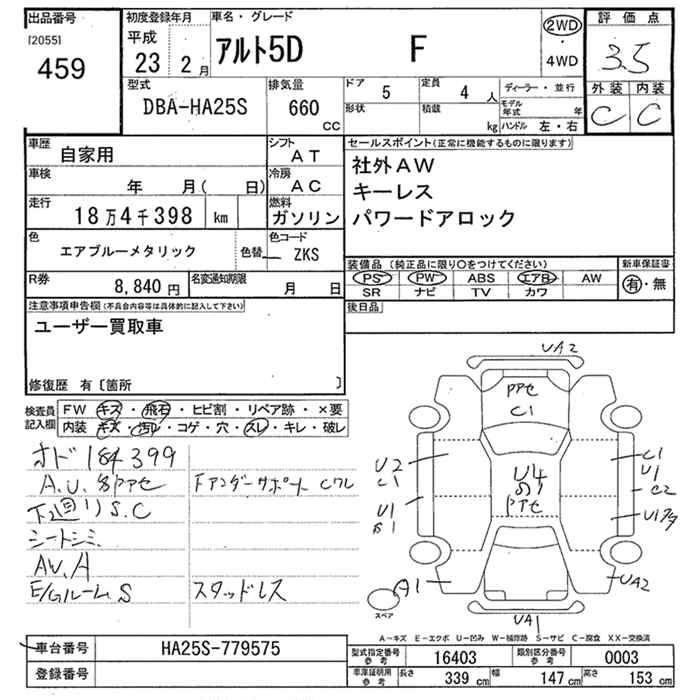 出品番号
[2055]
459
初度登録年月
平成
23 2月
車名・グレード
アルト5D F
2WD
・
4WD
評価点
3.5
外装 内装
C C
型式
DBA-HA25S
排気量
660 CC
ドア 5
形状
定員 4 人
積載 kg
ディーラー・並行
モデル年式 年
ハンドル 左・右
車歴 自家用
シフト AT
車検 年 月( 日)
冷房 AC
走行 18万4千398 km
燃料 ガソリン
色 エアブルーメタリック
色替
色コード ZKS
R券 8,840円
名変通知期限 月 日
セールスポイント(正常に機能するものに限ります)
社外AW
キーレス
パワードアロック
装備品(純正品に限り○をつけてください)
PS PW ABS エアB AW
SR ナビ TV カワ
新車保証書
有・無
後日品
注意事項申告欄(不具合内容等は具体的に記入して下さい)
ユーザー買取車
修復歴 有〔箇所 〕
検査員記入欄
FW キズ・飛石・ヒビ割・リペア跡・×要
内装 キズ・汚レ・コゲ・穴・スレ・キレ・破レ
オド 184399
A.U.
Fアンダーサポート
下廻り S.C
シートシミ
AW.A
E/Gルーム S
スタッドレス
UA2
C1
U2
C1
U1
U4
C1
U1
C2
A1
UA2
UA1
スペア
A-キズ E-エクボ U-凹み W-補修跡 S-サビ C-腐食 XX-交換済
車台番号 HA25S-779575
登録番号
型式指定番号 参考 16403
類別区分番号 参考 0003
車庫証明用 参考
長さ 339 cm
幅 147 cm
高さ 153 cm